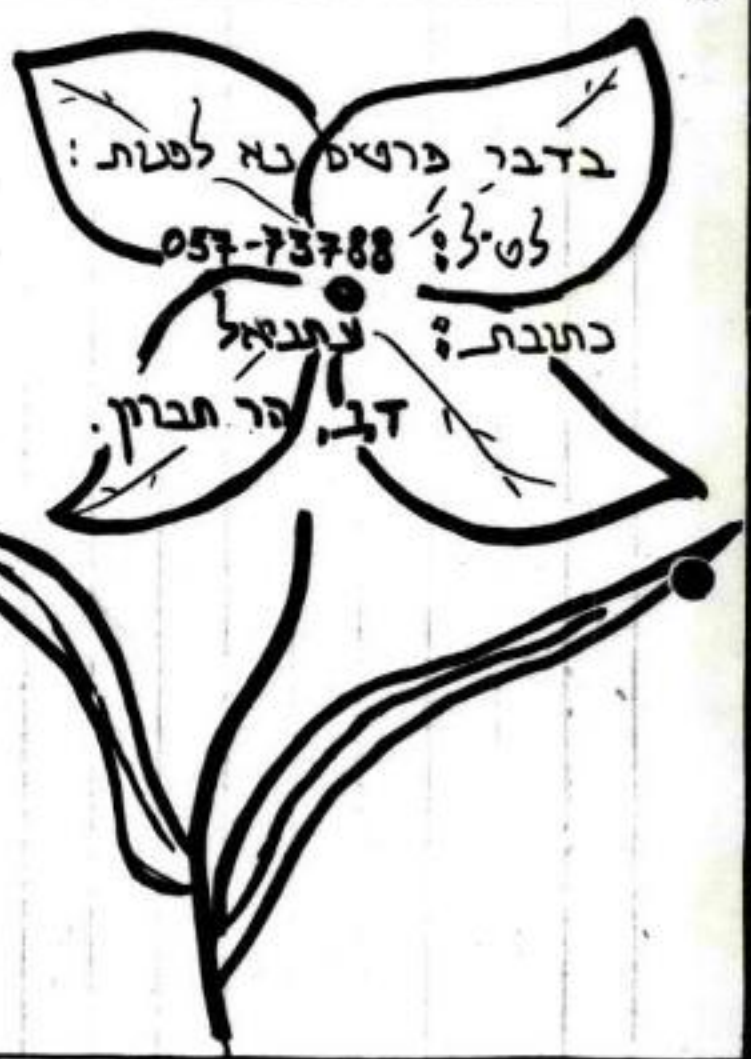 בדבר פרטים נא לפנות:
לטיל: 057-73788
כתובת: עתניאל
ד.נ. הר חברון.